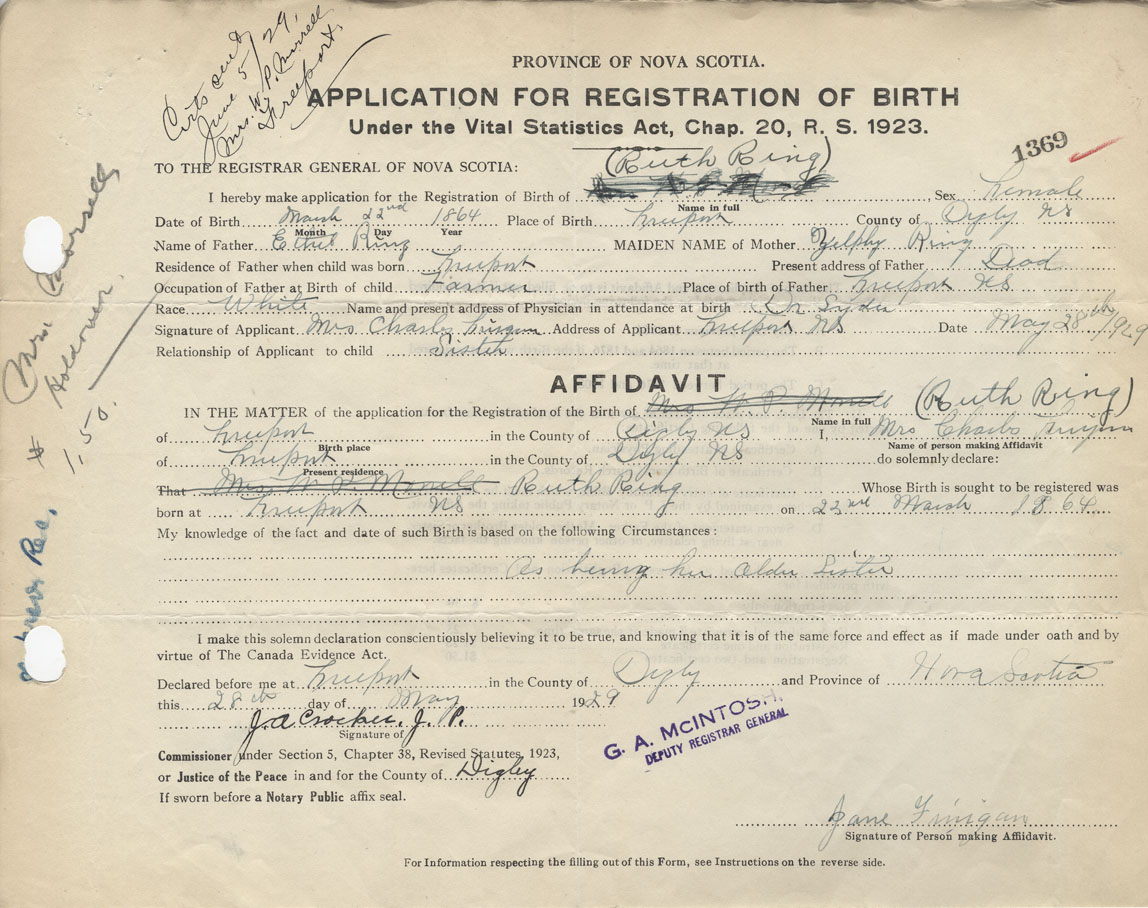 Certs sent
June 5/29.
Mrs. W. P. Morrell
Freeport.
PROVINCE OF NOVA SCOTIA.
APPLICATION FOR REGISTRATION OF BIRTH
Under the Vital Statistics Act, Chap. 20, R. S. 1923.
1369
TO THE REGISTRAR GENERAL OF NOVA SCOTIA:
(Ruth Ring)
I hereby make application for the Registration of Birth of Sex Female
Name in full
Date of Birth March 22nd 1864 Place of Birth Freeport County of Digby NS
Month Day Year
Name of Father Ethel Ring MAIDEN NAME of Mother Zelphy Ring
Residence of Father when child was born Freeport Present address of Father Dead
Occupation of Father at Birth of child Farmer Place of birth of Father Freeport NS
Race White Name and present address of Physician in attendance at birth Dr
Signature of Applicant Mrs Charles Finigan Address of Applicant Freeport NS Date May 28th/1929
Relationship of Applicant to child Sister
AFFIDAVIT
IN THE MATTER of the application for the Registration of the Birth of Mrs W. P. Morrell (Ruth Ring)
Name in full
of Freeport in the County of Digby NS I, Mrs Charles Finigan
Birth place Name of person making Affidavit
of Freeport in the County of Digby NS do solemnly declare:
Present residence
That Mrs W P Morrell Ruth Ring Whose Birth is sought to be registered was
born at Freeport NS on 22nd March 1864
My knowledge of the fact and date of such Birth is based on the following Circumstances:
As being her older Sister
I make this solemn declaration conscientiously believing it to be true, and knowing that it is of the same force and effect as if made under oath and by
virtue of The Canada Evidence Act.
Declared before me at Freeport in the County of Digby and Province of Nova Scotia
this 28th day of May 1929
J. A Crocker, J. P.
Signature of
G. A. MCINTOSH,
DEPUTY REGISTRAR GENERAL
Commissioner under Section 5, Chapter 38, Revised Statutes, 1923,
or Justice of the Peace in and for the County of Digby
If sworn before a Notary Public affix seal.
Jane Finigan
Signature of Person making Affidavit.
For Information respecting the filling out of this Form, see Instructions on the reverse side.
Mrs. Morrell
Holdover
$ 1.50.
Rec.